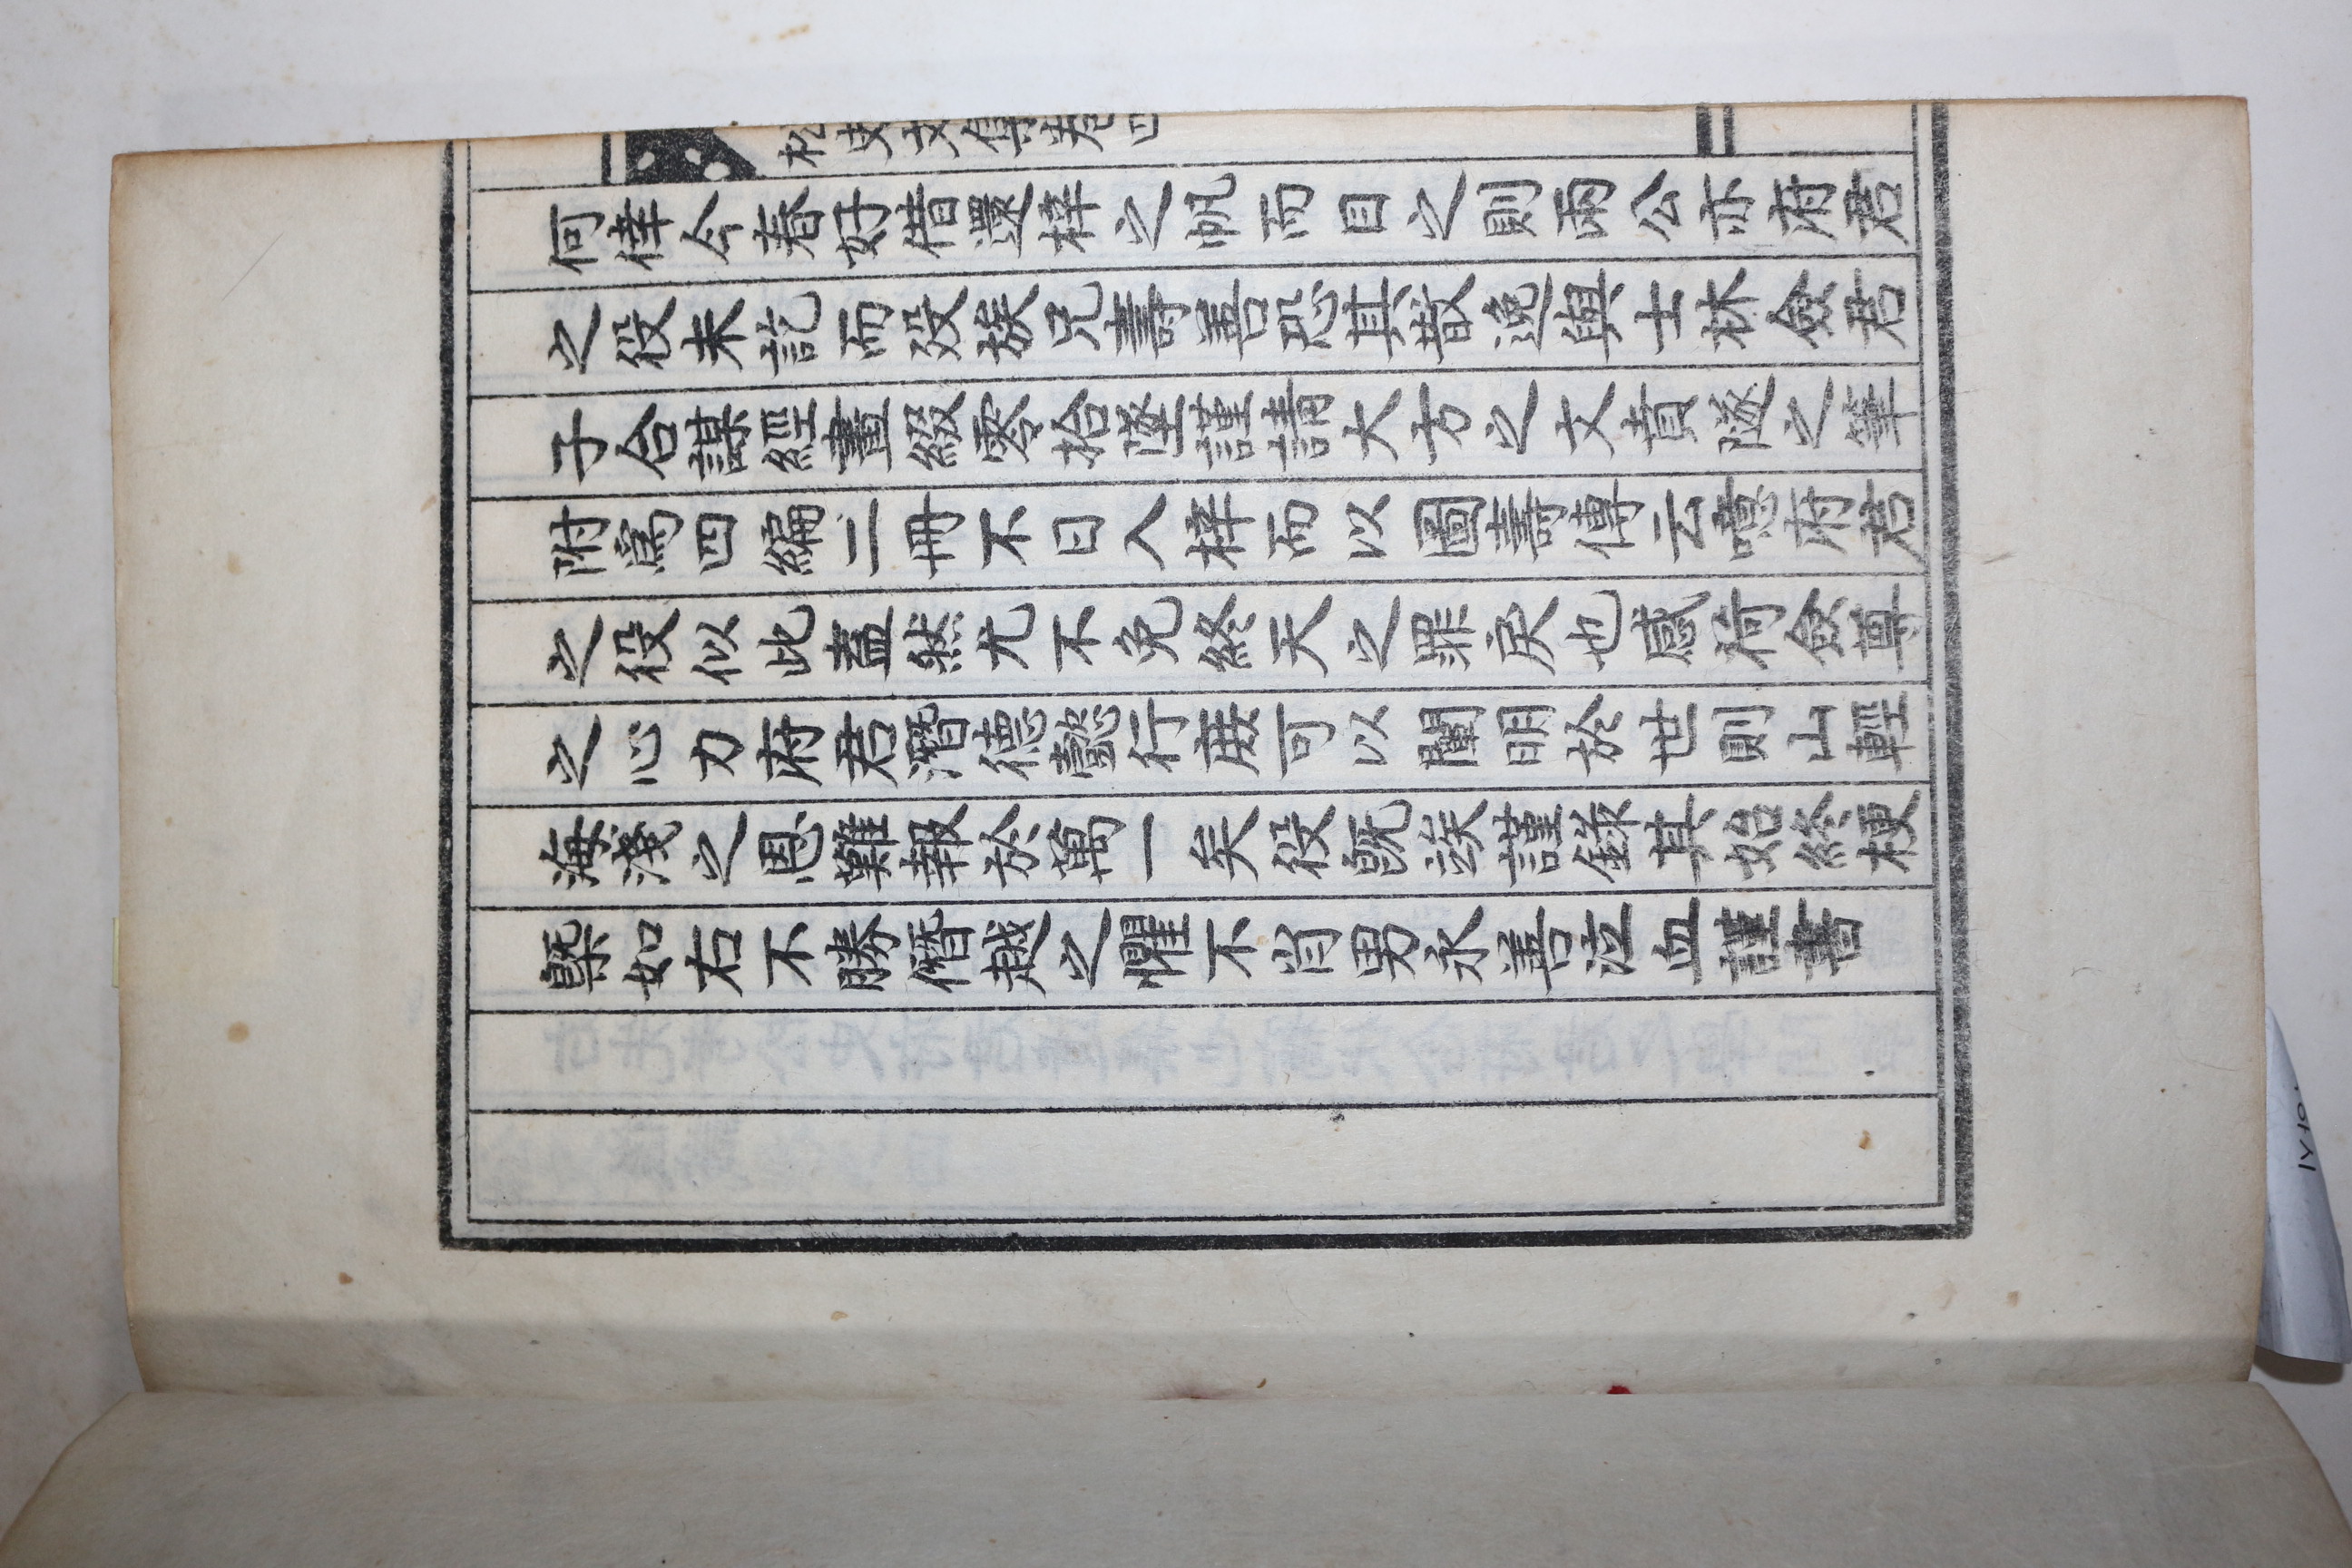 松史文集卷四
何倖今春好借還梓之帆而目之則兩公亦府君
之役未訖而歿族兄壽善恐其散逸與士林僉君
子合謀經畫綴零拾墜謹請大方之文賁隧之筆
附爲四編二冊不日入梓而以圖壽傳云噫府君
之役似此盍然尤不免終天之罪戾也感荷僉尊
之心力府君潛德懿行庶可以闡明於世則山輕
海淺之恩難報於萬一矣役旣竢謹錄其始終梗
槩如右不勝僭越之懼不肖男永善泣血謹書